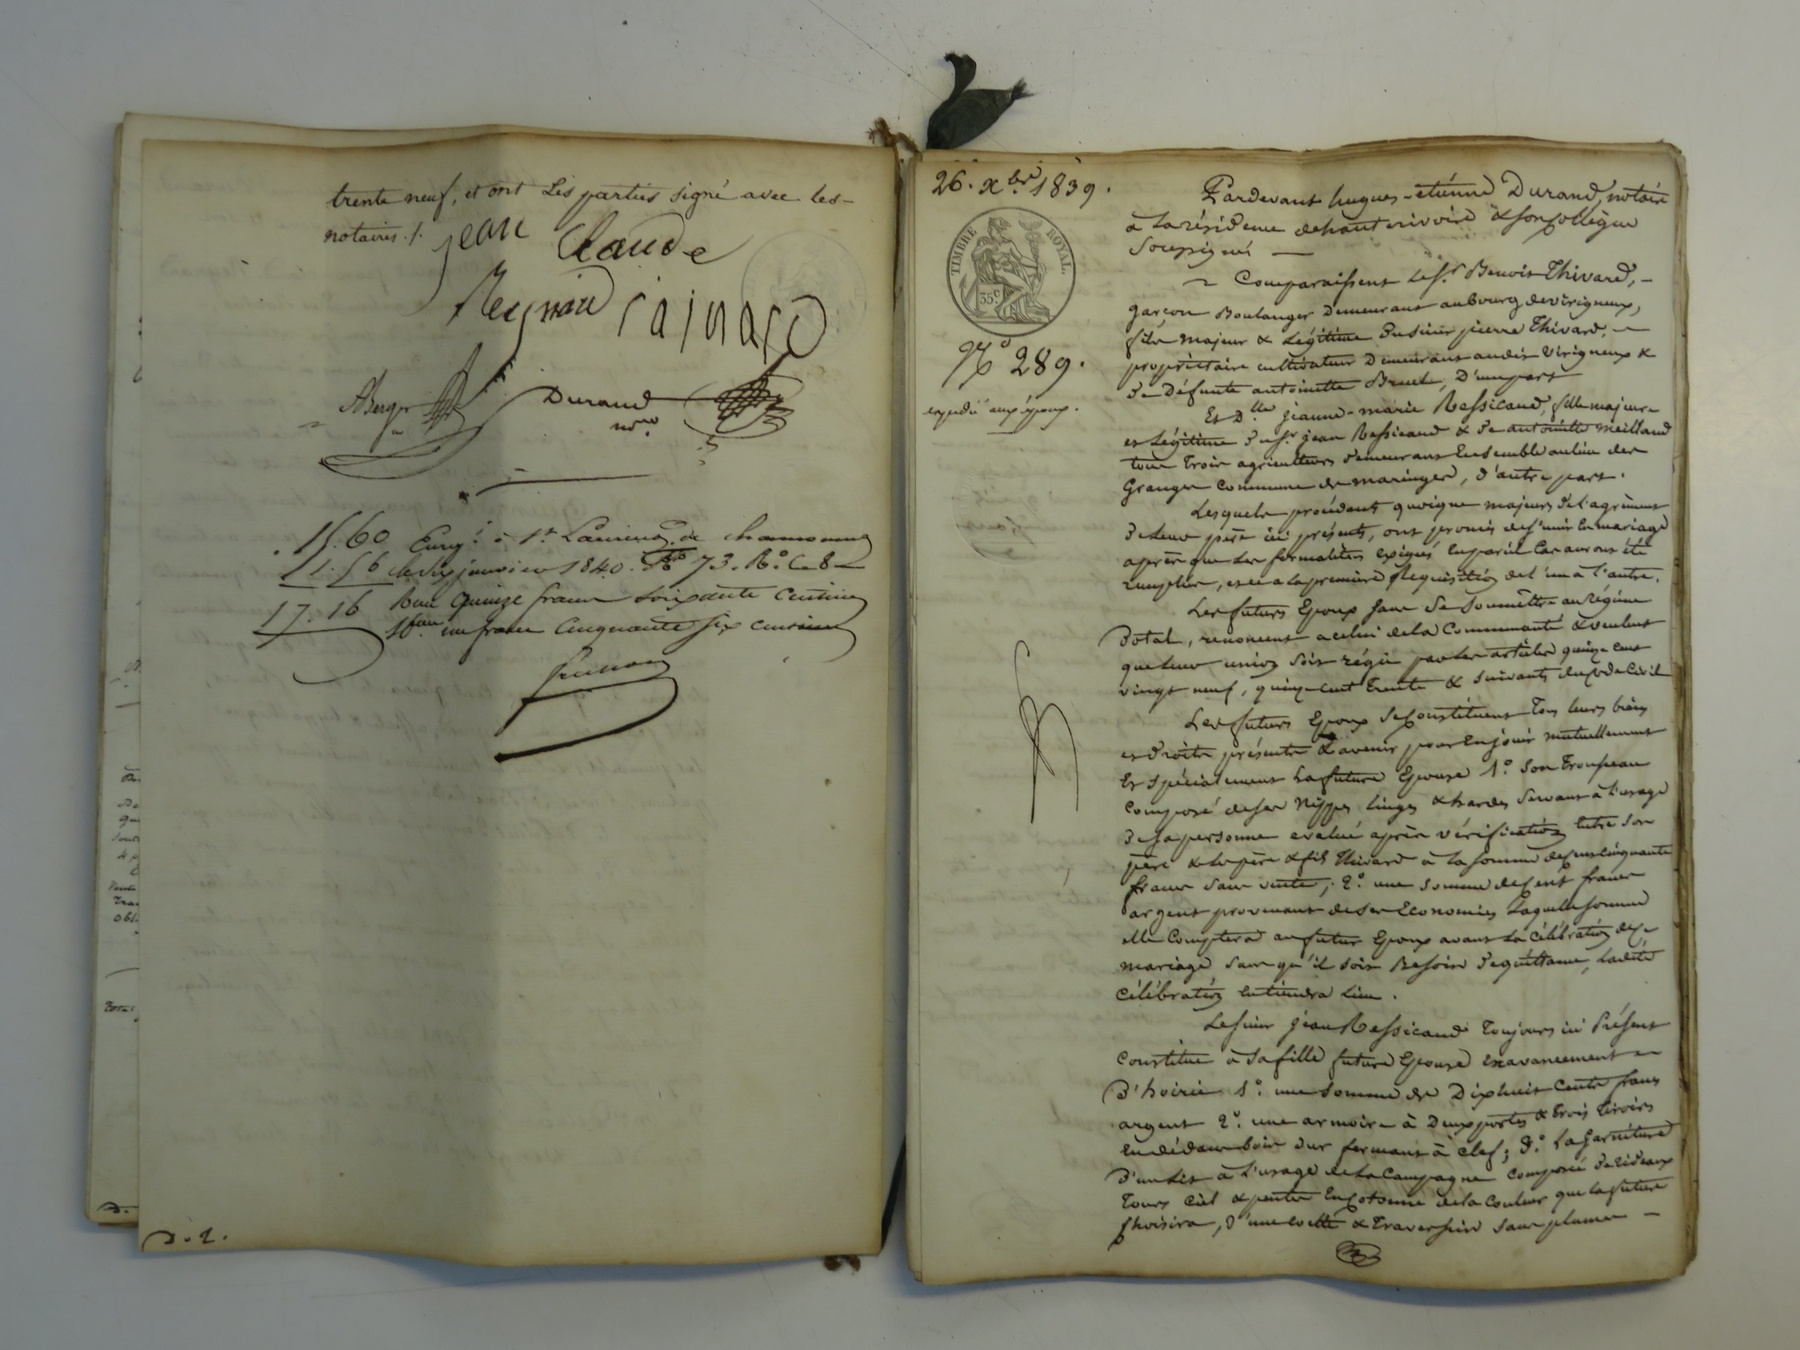 trente neuf, et ont les parties signé avec les
notaires ./.
jean Claude
Reynaud
Berger
Durand
nre
15. 60 Enrg.t à St Laurent de chamousset
1. 56 le six janvier 1840. fo 73. Ro. C. 8
17. 16 Reçu quinze francs soixante centimes
Sbon. un franc cinquante six centimes
D. 2.
26. Xbre 1839.
TIMBRE ROYAL.
35c
No 289.
expédié aux époux.
Pardevant hugues-étienne Durand, notaire
à la résidence de hauterivoire & son collègue
soussignés
Comparaissent le sr. Benoit Thivard,
garçon Boulanger demeurant au bourg de virigneux,
fils majeur & légitime du sieur pierre Thivard,
propriétaire cultivateur demeurant audit virigneux &
de défunte antoinette Bruel, d'une part
Et Dlle jeanne-marie Ressicaud, fille majeure
et légitime du sr. jean Ressicaud & de antoinette meilland
tous trois agriculteurs demeurant ensemble au lieu des
Granges commune de maringes, d'autre part.
Lesquels procédant quoique majeurs de l'agrément
de leur père ici présents, ont promis de s'unir en mariage
après que les formalités exigées en pareil cas auront été
remplies, et ce a la première Réquisition de l'un à l'autre.
Les futurs Epoux pour se soumettre au régime
Dotal, renoncent a celui de la Communauté & veulent
que leur union soit régie par les articles quinze cent
vingt neuf, quinze cent trente & suivants du code civil
Les futurs Epoux se constituent tous leurs biens
et droits présents & avenir pour en jouir mutuellement
Et spécialement la future Epouse 1o. son trousseau
composé de ses nippes linges & hardes servant à l'usage
de sa personne evalué après vérification entre son
père & les père & fils Thivard à la somme de cent cinquante
francs sans vente; 2o. une somme de cent francs
argent provenant de ses Economies laquelle somme
elle comptera au futur Epoux avant la célébration de ce
mariage, sans qu'il soit Besoin de quittance, ladite
célébration en tiendra lieu.
Le sieur jean Ressicaud toujours ici Présent
Constitue à sa fille future Epouse en avancement
D'hoirie 1o. une somme de Dix huit cents francs
argent 2o. une armoire à deux portes & trois tiroirs
en dedans bois dur fermant à clef; 3o. la garniture
D'un lit à l'usage de la Campagne composée de rideaux
tours ciel & pente en cotonne de la couleur que la future
choisira, d'une coette & traversin sans plumes